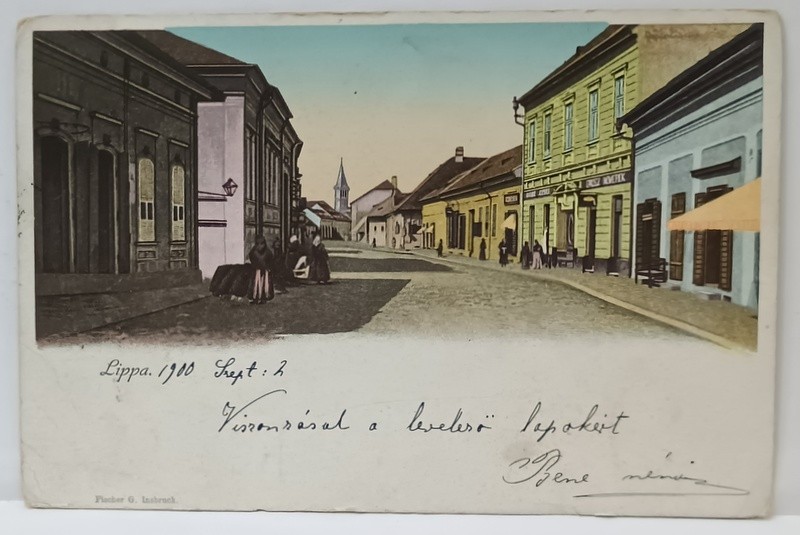 Lippa. 1900 Szept: 2
Viszonzásul a levelező lapokért
Bene néni
Fischer G. Insbruck.